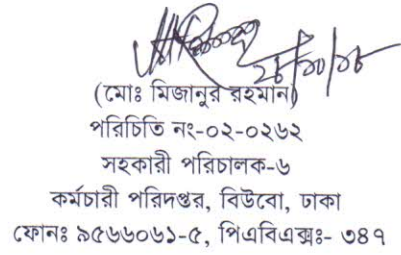 (মোঃ মিজানুর রহমান)
পরিচিতি নং-০২-০২৬২
সহকারী পরিচালক-৬
কর্মচারী পরিদপ্তর, বিউবো, ঢাকা
ফোনঃ ৯৫৬৬০৬১-৫, পিএবিএক্সঃ- ৩৪৭